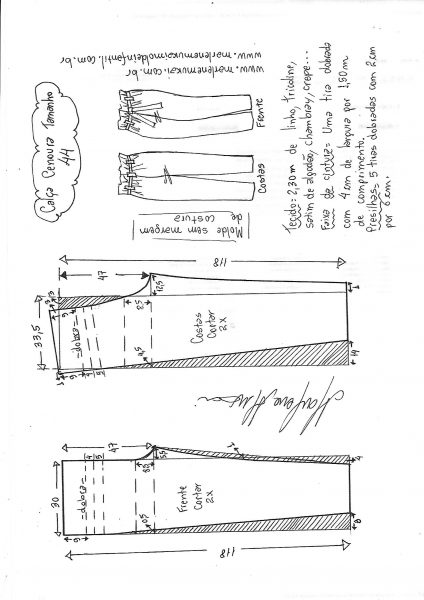 Calça Cenoura Tamanho
44
www.marlenemukai.com.br
www.marlenemukaimoldeinfantil.com.br
Frente
Costas
Molde sem margem
de costura
Tecido= 2,30m de linho, tricoline,
satim de algodão, chambray, crepe...
Faixa de cintura= Uma tira dobrada
com 4cm de largura por 1,80m
de comprimento.
Presilhas= 5 tiras dobradas com 2cm
por 6cm.
118
47
33,5
12,5
8,5
0,5
=dobra=
Costas
Cortar
2X
1
14
47
30
5,5
8,5
0,5
=dobra=
Frente
Cortar
2X
1
4
8
118